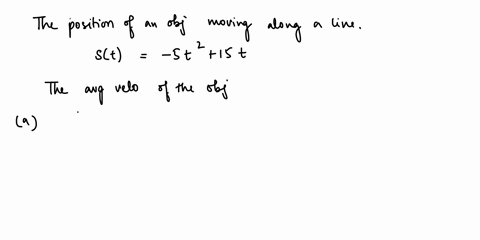 The position of an obj moving along a line.
s(t) = -5t² + 15t
The avg velo of the obj
(a)